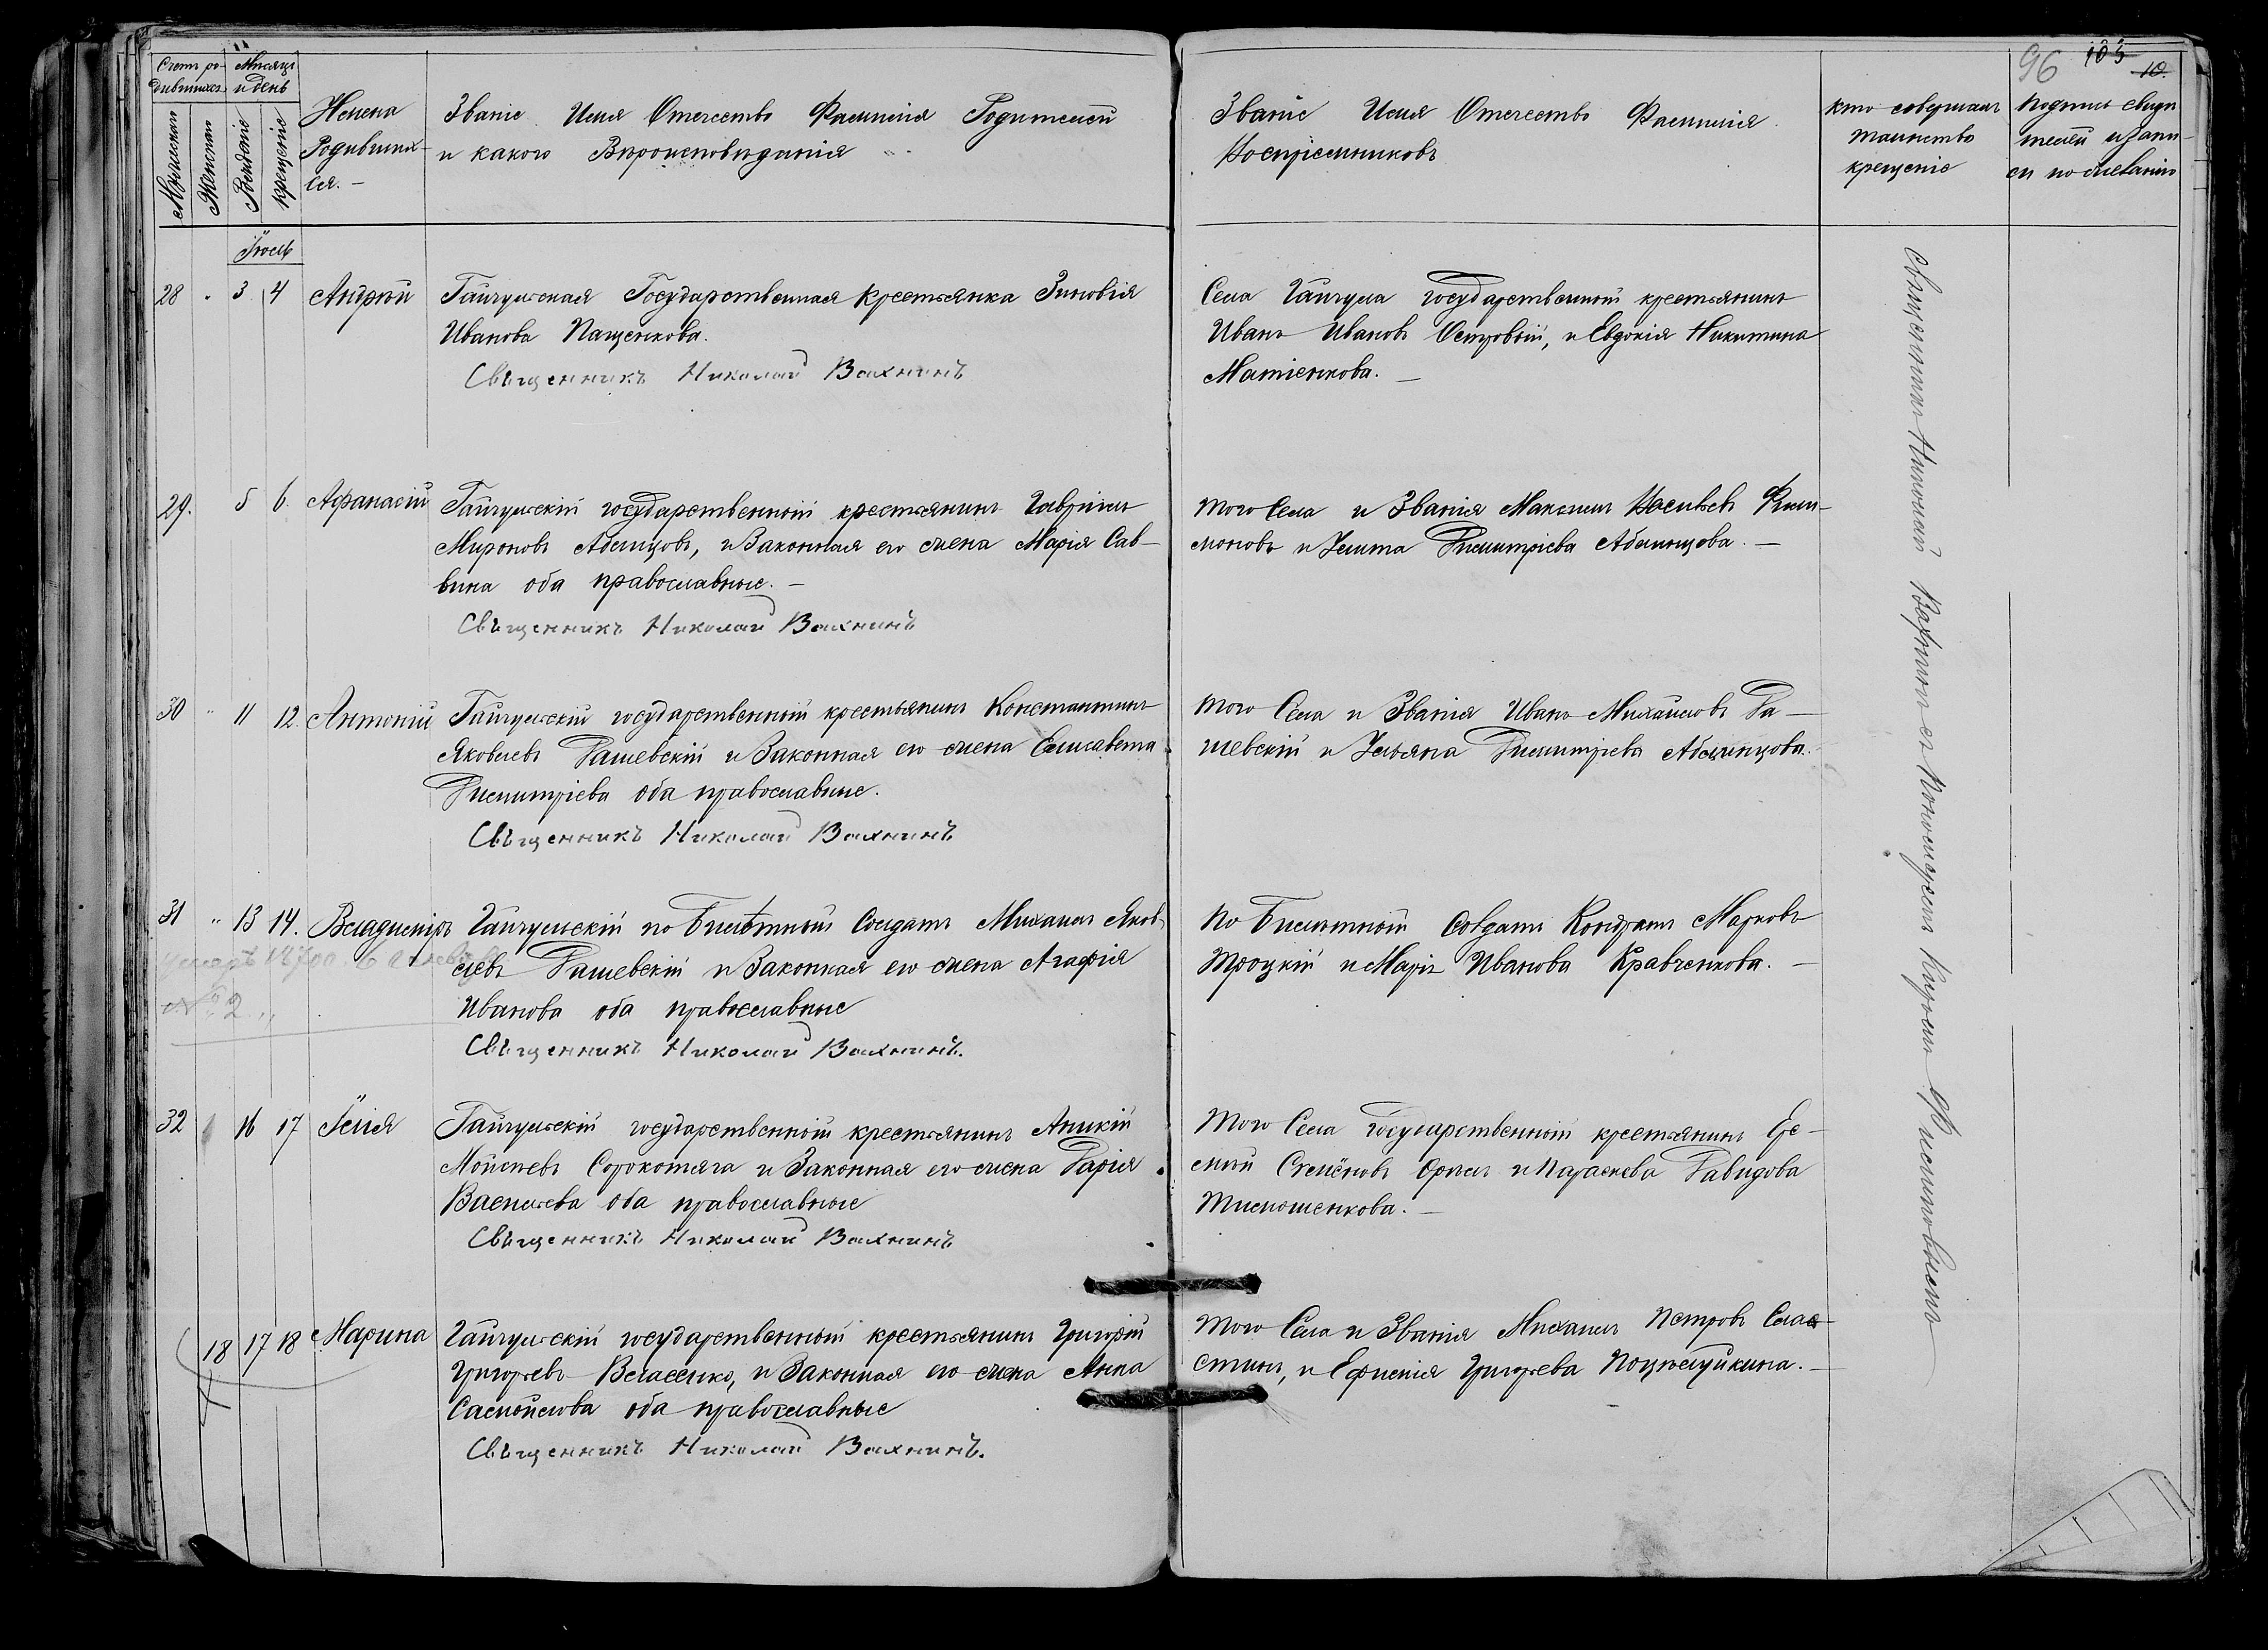 96 103 10.
Счетъ ро-
дившихся
Мѣсяцъ
и день
Мужеской
Женской
Рожденіе
крещеніе
Имена
Родивших-
ся. –
Званіе Имя Отечество Фамилія Родителей
и какого Вѣроисповѣданія
Званіе Имя Отечество Фамилія
Воспріемниковъ
кто совершалъ
таинство
крещеніе
Подпись свидѣ-
телей и запи-
си по желанію
Іюль
28 3 4 Андрѣй Гайчульская Государственная крестьянка Зиновія
Иванова Пащенкова.
Священникъ Николай Вахнинъ
Села Гайчула государственный крестьянинъ
Иванъ Ивановъ Осиповый, и Евдокія Никитина
Матіенкова. –
29. 5 6. Афанасій Гайчульскій государственный крестьянинъ Гавріилъ
Мироновъ Абеленцовъ, и Законная его жена Марія Сав-
вина оба православные. –
Священникъ Николай Вахнинъ
того Села и Званія Максимъ Васильевъ Фили-
моновъ и Улита Димитріева Абелинцова. –
30 " 11 12. Антоній Гайчульскій государственный крестьянинъ Константинъ
Яковлевъ Рашевскій и Законная его жена Елисавета
Димитріева оба православные.
Священникъ Николай Вахнинъ
того Села и Званія Иванъ Михайловъ Ра-
шевскій и Ульяна Димитріева Абелинцова.
31 " 13 14. Владиміръ Гайчульскій по билѣтный Солдатъ Михаилъ Яков-
левъ Рашевскій и Законная его жена Агафія
Иванова оба православные
Священникъ Николай Вахнинъ.
№ 2
По билѣтный Солдатъ Кондратъ Марковъ
Троцкій и Марія Иванова Кравченкова. –
32 16 17 Илія Гайчульскій государственный крестьянинъ Аникій
Мойсіевъ Сорокотяга и Законная его жена Дарія
Васильева оба православные
Священникъ Николай Вахнинъ
того Села государственный крестьянинъ
Семёновъ Орелъ и Параскева Давидова
Тимошенкова. –
18 17 18 Марина Гайчульскій государственный крестьянинъ Григорій
Григорьевъ Власенко, и Законная его жена Анна
Самойлова оба православные
Священникъ Николай Вахнинъ.
того Села и Званія Михаилъ Петровъ Слас-
стинъ, и Ефимія Григорьева Поцелуйкина. –
Священникъ Николай Вахнинъ съ Пономаремъ Филипповымъ